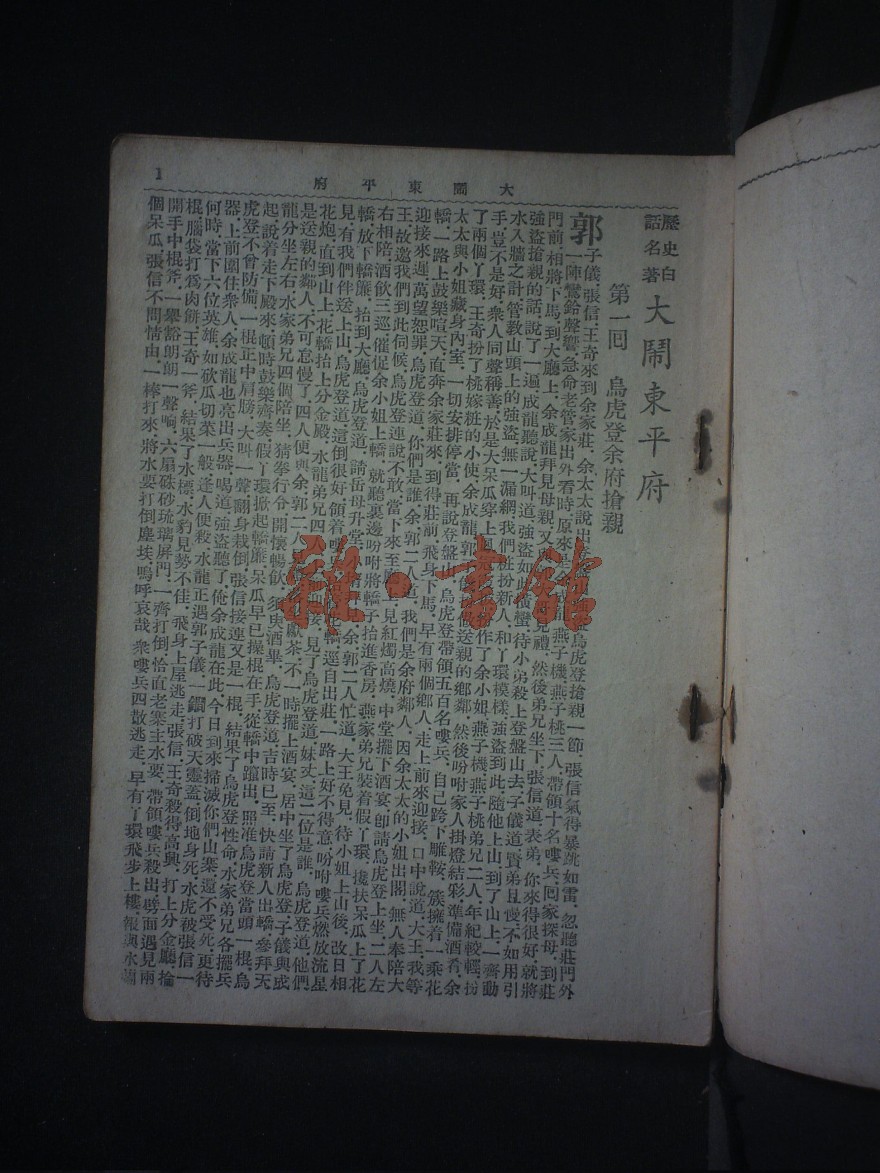 大鬧東平府
1
歷史白
話名著
大鬧東平府
第一回　烏虎登余府搶親
郭子儀,張信,王奇來到余家莊,余太太說出烏虎登搶親一節,張信氣得暴跳如雷,忽聽莊門外
一陣鸞鈴聲響,急命老管家出外看時,原來是燕子機,燕子桃三人,帶領十名嘍兵,回家探母,到莊
門前相將下馬,到大廳上,余成龍拜見母親,又見禮,然後弟兄坐下,張信道,表弟,你來得很好,就將
強盜搶親的話,說了一遍,成龍聽說,大叫道,強盜如此橫蠻,待小弟殺上登盤山去,子儀道,賢弟且慢,不如用引
水入牆之計,管教山頭上的強盜,無一漏網,我們裝扮新人,和丫環模樣,強盜到此,隨他上山,到了山上,一齊動
手,豈不是好,衆人同聲稱善,於是大呆瓜穿上作了余小姐,燕子機,燕子桃弟兄二人,年紀較輕,扮
了兩個丫環,王奇扮了桃嫁粧的小使,余成龍,郭送親的鄉鄰,然後吩咐家人掛燈結彩,準備酒肴,余
太太與小姐藏身內室,一切安排停當,再說登盤山烏虎登帶領五百名嘍兵,自己跨下雕鞍,簇擁着一乘花
轎,一路上鼓樂喧天,直奔余家莊來,到得莊前,飛身下馬,早有兩個鄉人,走上前來迎接,口中說道,大王,我等
迎接來遲,萬望恕罪,烏虎登道,你們是誰,余郭二人道,我們是余府鄰人,因余太太的小姐出閣,無人奉陪大
王,故邀我們到此伺候,烏虎登連說不敢,當下來至廳上,見紅燭高燒,中堂擺下酒宴,卽請烏虎登上坐,二人左
右相陪,酒飲三巡,催促余小姐上轎,就聽裏邊吩咐將轎子抬進香房,燕家弟兄裝着假丫環,攙扶呆瓜上了花
轎,放下轎簾,抬到大廳,烏虎登道,請岳母升堂,余郭二人忙道,大王免見,待小姐上山後,改日相
見,有我們伴送上山,烏虎登道,這倒很好,領着轎,逕自出莊,一路上好不得意,吩咐嘍兵燃放流星
花炮,直到山上,花轎抬上分金殿,水龍弟兄四人迎接,見了烏虎登道,妹丈,這二位是誰,烏虎登道,他們
是送親的鄰人,不可怠慢了,四人便與余,郭二人獻茶,不一時擺上酒宴,居中坐了烏虎登,子儀與成
龍分坐左右,水家弟兄四個陪坐,猜拳行令,開懷暢飲,須臾酒畢,烏虎登道,吉時已至,快請新人出轎,參拜天
起,說着走下殿來,頓時鼓樂齊奏,假丫環掀起轎簾,呆瓜早已操棍在手,從轎中躥出,照準烏虎登當頭一棍,烏
虎登不曾防備,一棍正中肩膀,大叫一聲,翻身栽倒,張信接連又是一棍,結果了烏虎登性命,水家弟兄各擺兵
器,上前圍住衆人,余成龍也亮出兵器,喝道,強盜聽了,俺余成龍在此,今日到來掃滅你們山寨,還不受死,更待
何時,當下六位英雄,如砍瓜切菜一般,逢人便殺,水龍正遇郭子儀,一鐧打破天靈蓋,倒地身死,水虎被張信一
棍,腦袋打爲肉餅,王奇一斧,結果了水標,水豹見勢不佳,飛身上屋逃走,張信,王奇殺得高興,打上分金廳,掄
開手中棍斧,一擧豁朗朗一聲响,六扇硃砂琉璃屏門,一齊打倒,恰直老寨主水要,帶領嘍兵殺出,劈面遇見兩
個呆瓜,張信不問情由,一棒打來,將水要打倒塵埃,嗚呼哀哉,衆嘍兵四散逃走,早有丫環飛步上樓,報與水
雜·書館